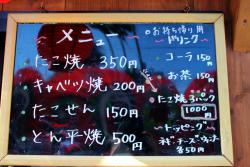 メニュー
たこ焼 350円
キャベツ焼 200円
たこせん 150円
とん平焼 500円
◎お持ち帰り用
ドリンク
コーラ 150円
お茶 150円
たこ焼3パック
1000円
トッピング
ネギ・チーズ・ウィンナー
各50円